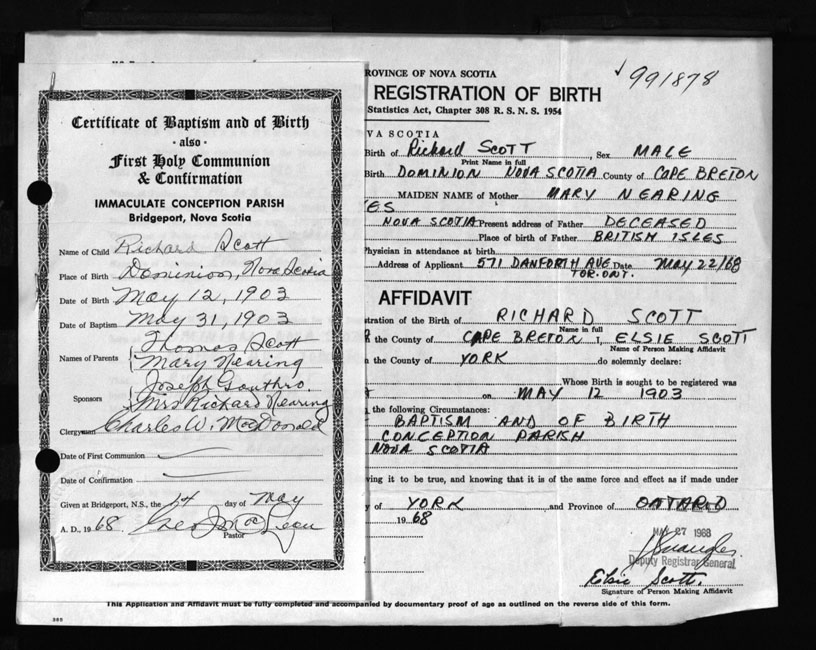 Certificate of Baptism and of Birth
- also -
First Holy Communion
& Confirmation
IMMACULATE CONCEPTION PARISH
Bridgeport, Nova Scotia
Name of Child Richard Scott
Place of Birth Dominion, Nova Scotia
Date of Birth May 12, 1903
Date of Baptism May 31, 1903
Names of Parents Thomas Scott
Mary Nearing
Sponsors Joseph Gouthro.
Mrs Richard Nearing
Clergyman Charles W. MacDonald
Date of First Communion
Date of Confirmation
Given at Bridgeport, N.S., the 14 day of May
A. D., 1968
Pastor
√991878
ROVINCE OF NOVA SCOTIA
REGISTRATION OF BIRTH
Statistics Act, Chapter 308 R. S. N. S. 1954
VA SCOTIA
Birth of Richard SCOTT, Sex MALE
Print Name in full
Birth DOMINION NOVA SCOTIA County of CAPE BRETON
MAIDEN NAME of Mother MARY NEARING
ES
NOVA SCOTIA Present address of Father DECEASED
Place of birth of Father BRITISH ISLES
Physician in attendance at birth
Address of Applicant 571 DANFORTH AVE Date MAY 22/68
TOR. ONT.
AFFIDAVIT
stration of the Birth of RICHARD SCOTT
Name in full
the County of CAPE BRETON I, ELSIE SCOTT
Name of Person Making Affidavit
the County of YORK do solemnly declare:
Whose Birth is sought to be registered was
on MAY 12 1903
the following Circumstances:
BAPTISM AND OF BIRTH
CONCEPTION PARISH
NOVA SCOTIA
ving it to be true, and knowing that it is of the same force and effect as if made under
y of YORK and Province of ONTARIO
1968
MAY 27 1968
Deputy Registrar General
Elsie Scott.
Signature of Person Making Affidavit
This Application and Affidavit must be fully completed and accompanied by documentary proof of age as outlined on the reverse side of this form.